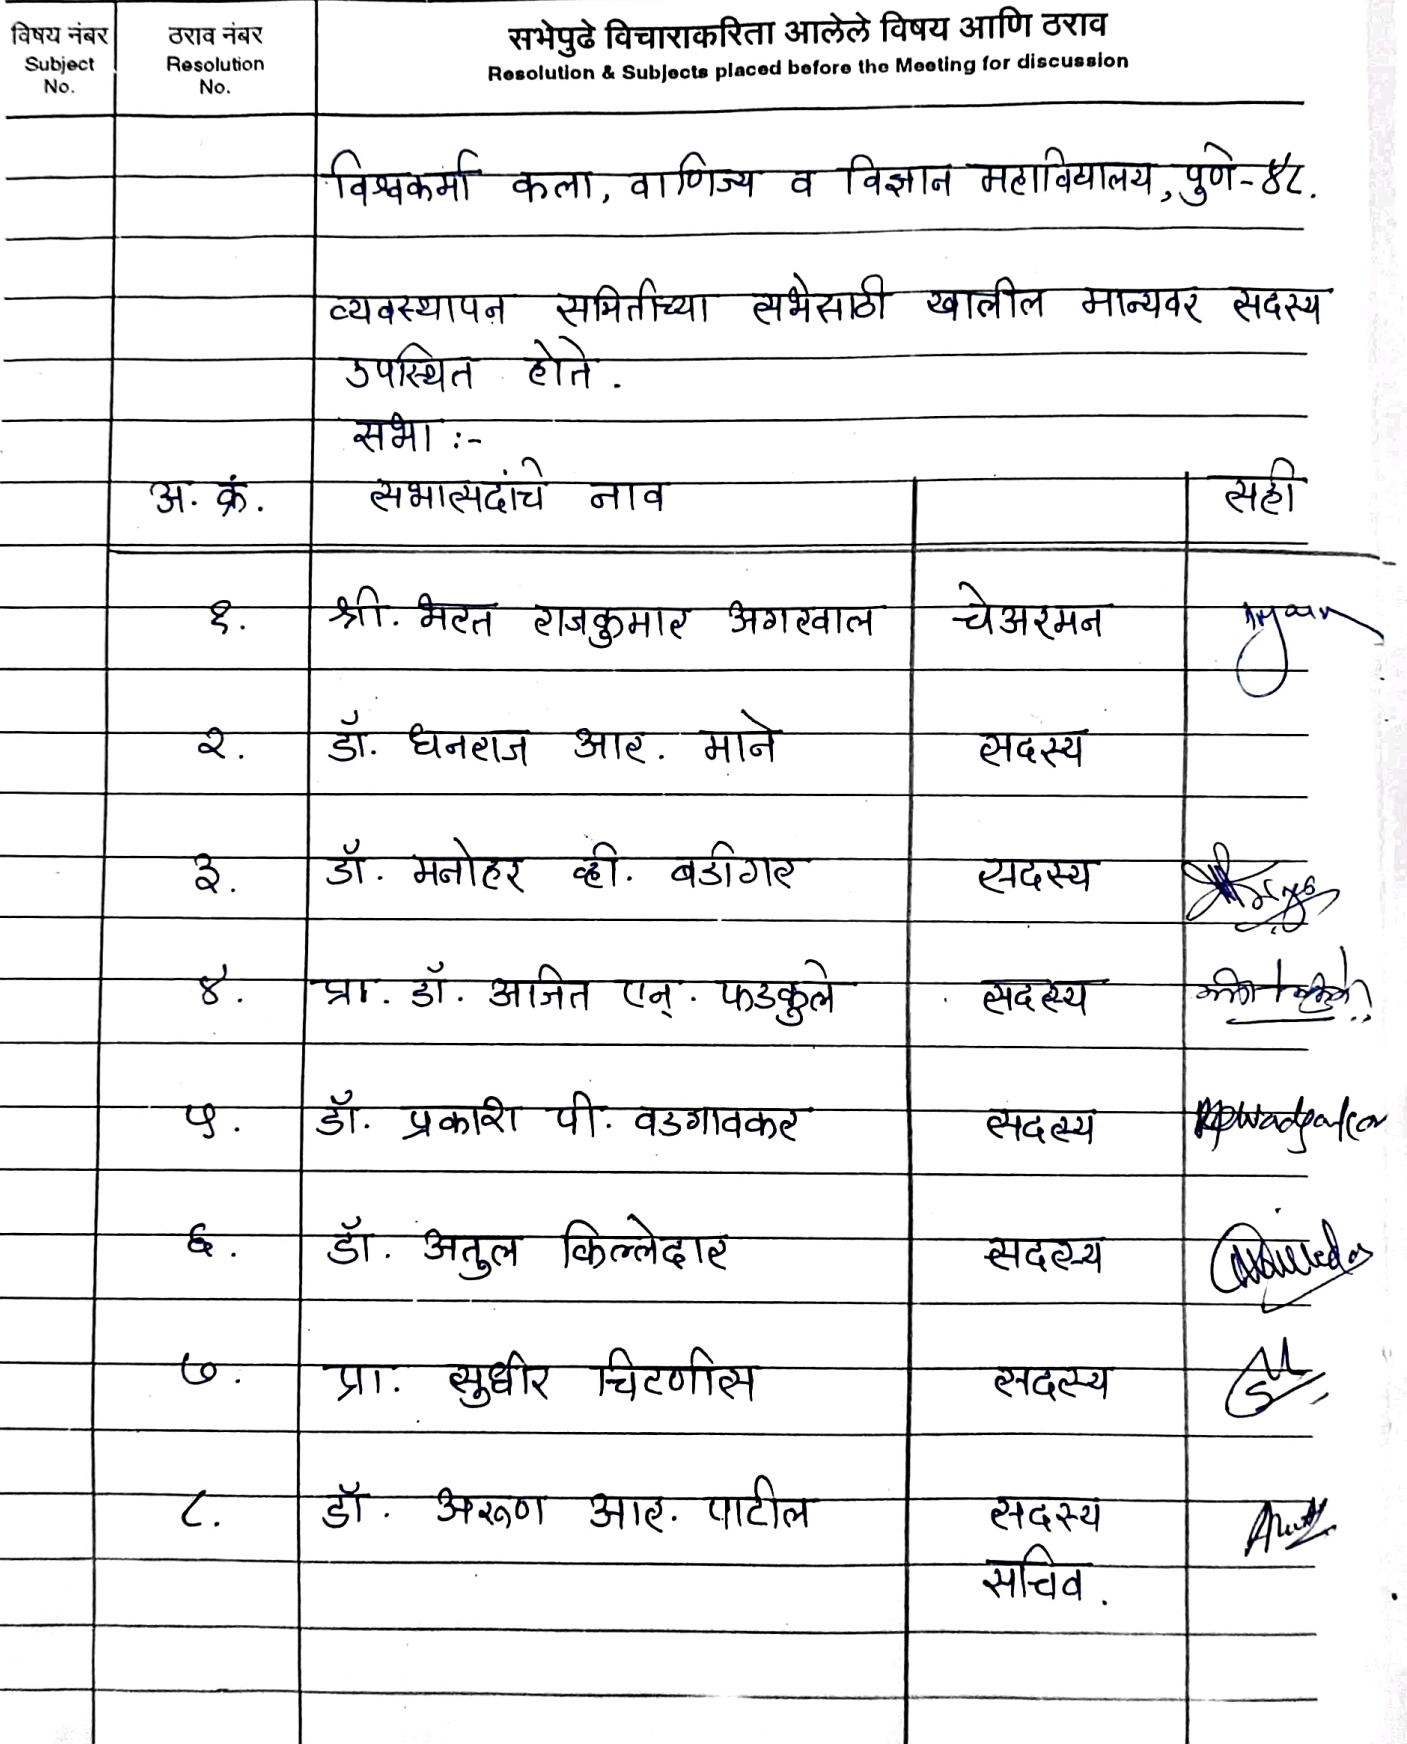 विषय नंबर ठराव नंबर सभेपुढे विचाराकरिता आलेले विषय आणि ठराव
Subject Resolution Resolution & Subjects placed before the Meeting for discussion
No. No.
विश्वकर्मा कला, वाणिज्य व विज्ञान महाविद्यालय, पुणे-४८.
व्यवस्थापन समितीच्या सभेसाठी खालील मान्यवर सदस्य
उपस्थित होते.
सभा :-
अ. क्रं. सभासदांचे नाव सही
१. श्री. भरत राजकुमार अगरवाल चेअरमन
२. डॉ. धनराज आर. माने सदस्य
३. डॉ. मनोहर व्ही. बडीगर सदस्य
४. प्रा. डॉ. अजित एन्. फडकुले सदस्य
५. डॉ. प्रकाश पी. वडगावकर सदस्य
६. डॉ. अतुल किल्लेदार सदस्य
७. प्रा. सुधीर चिटणीस सदस्य
८. डॉ. अरूण आर. पाटील सदस्य
सचिव.